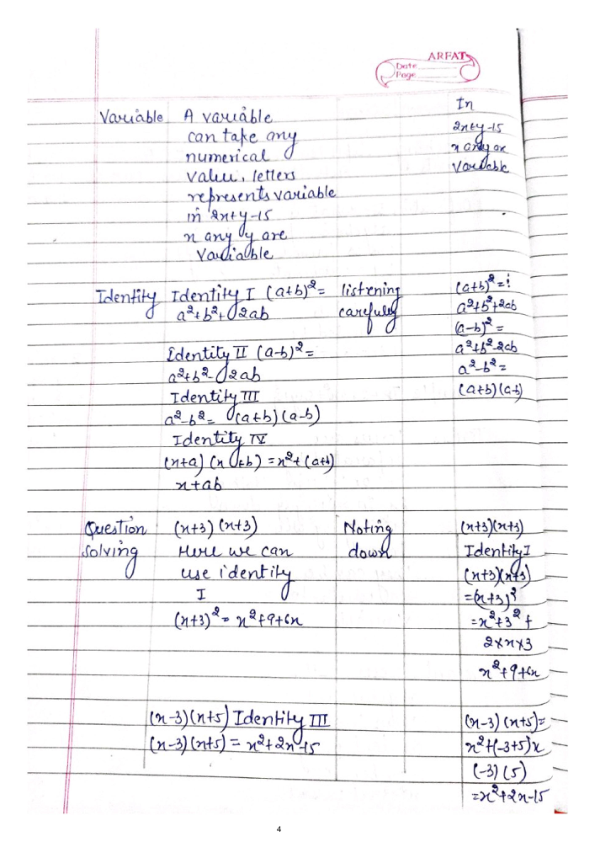 ARFAT
Date
Page
Variable A variable
can take any
numerical
value, letters
represents variable
in 2x+y-15
x any y are
Variable
In
2x+y-15
x any are
Variable
Identity Identity I (a+b)²=
a²+b²+2ab
listening
carefully
(a+b)²=
a²+b²+2ab
(a-b)²=
a²+b²-2ab
a²-b²=
(a+b)(a-b)
Identity II (a-b)²=
a²+b²-2ab
Identity III
a²-b²= (a+b)(a-b)
Identity IV
(x+a)(x+b)=x²+(a+b)
x+ab
Question
solving
(x+3)(x+3)
Here we can
use identity
I
(x+3)²= x²+9+6x
Noting
down
(x+3)(x+3)
Identity I
(x+3)(x+3)
=(x+3)²
=x²+3²+
2×x×3
x²+9+6x
(x-3)(x+5) Identity III
(x-3)(x+5)= x²+2x-15
(x-3)(x+5)=
x²+(-3+5)x
(-3)(5)
=x²+2x-15
4